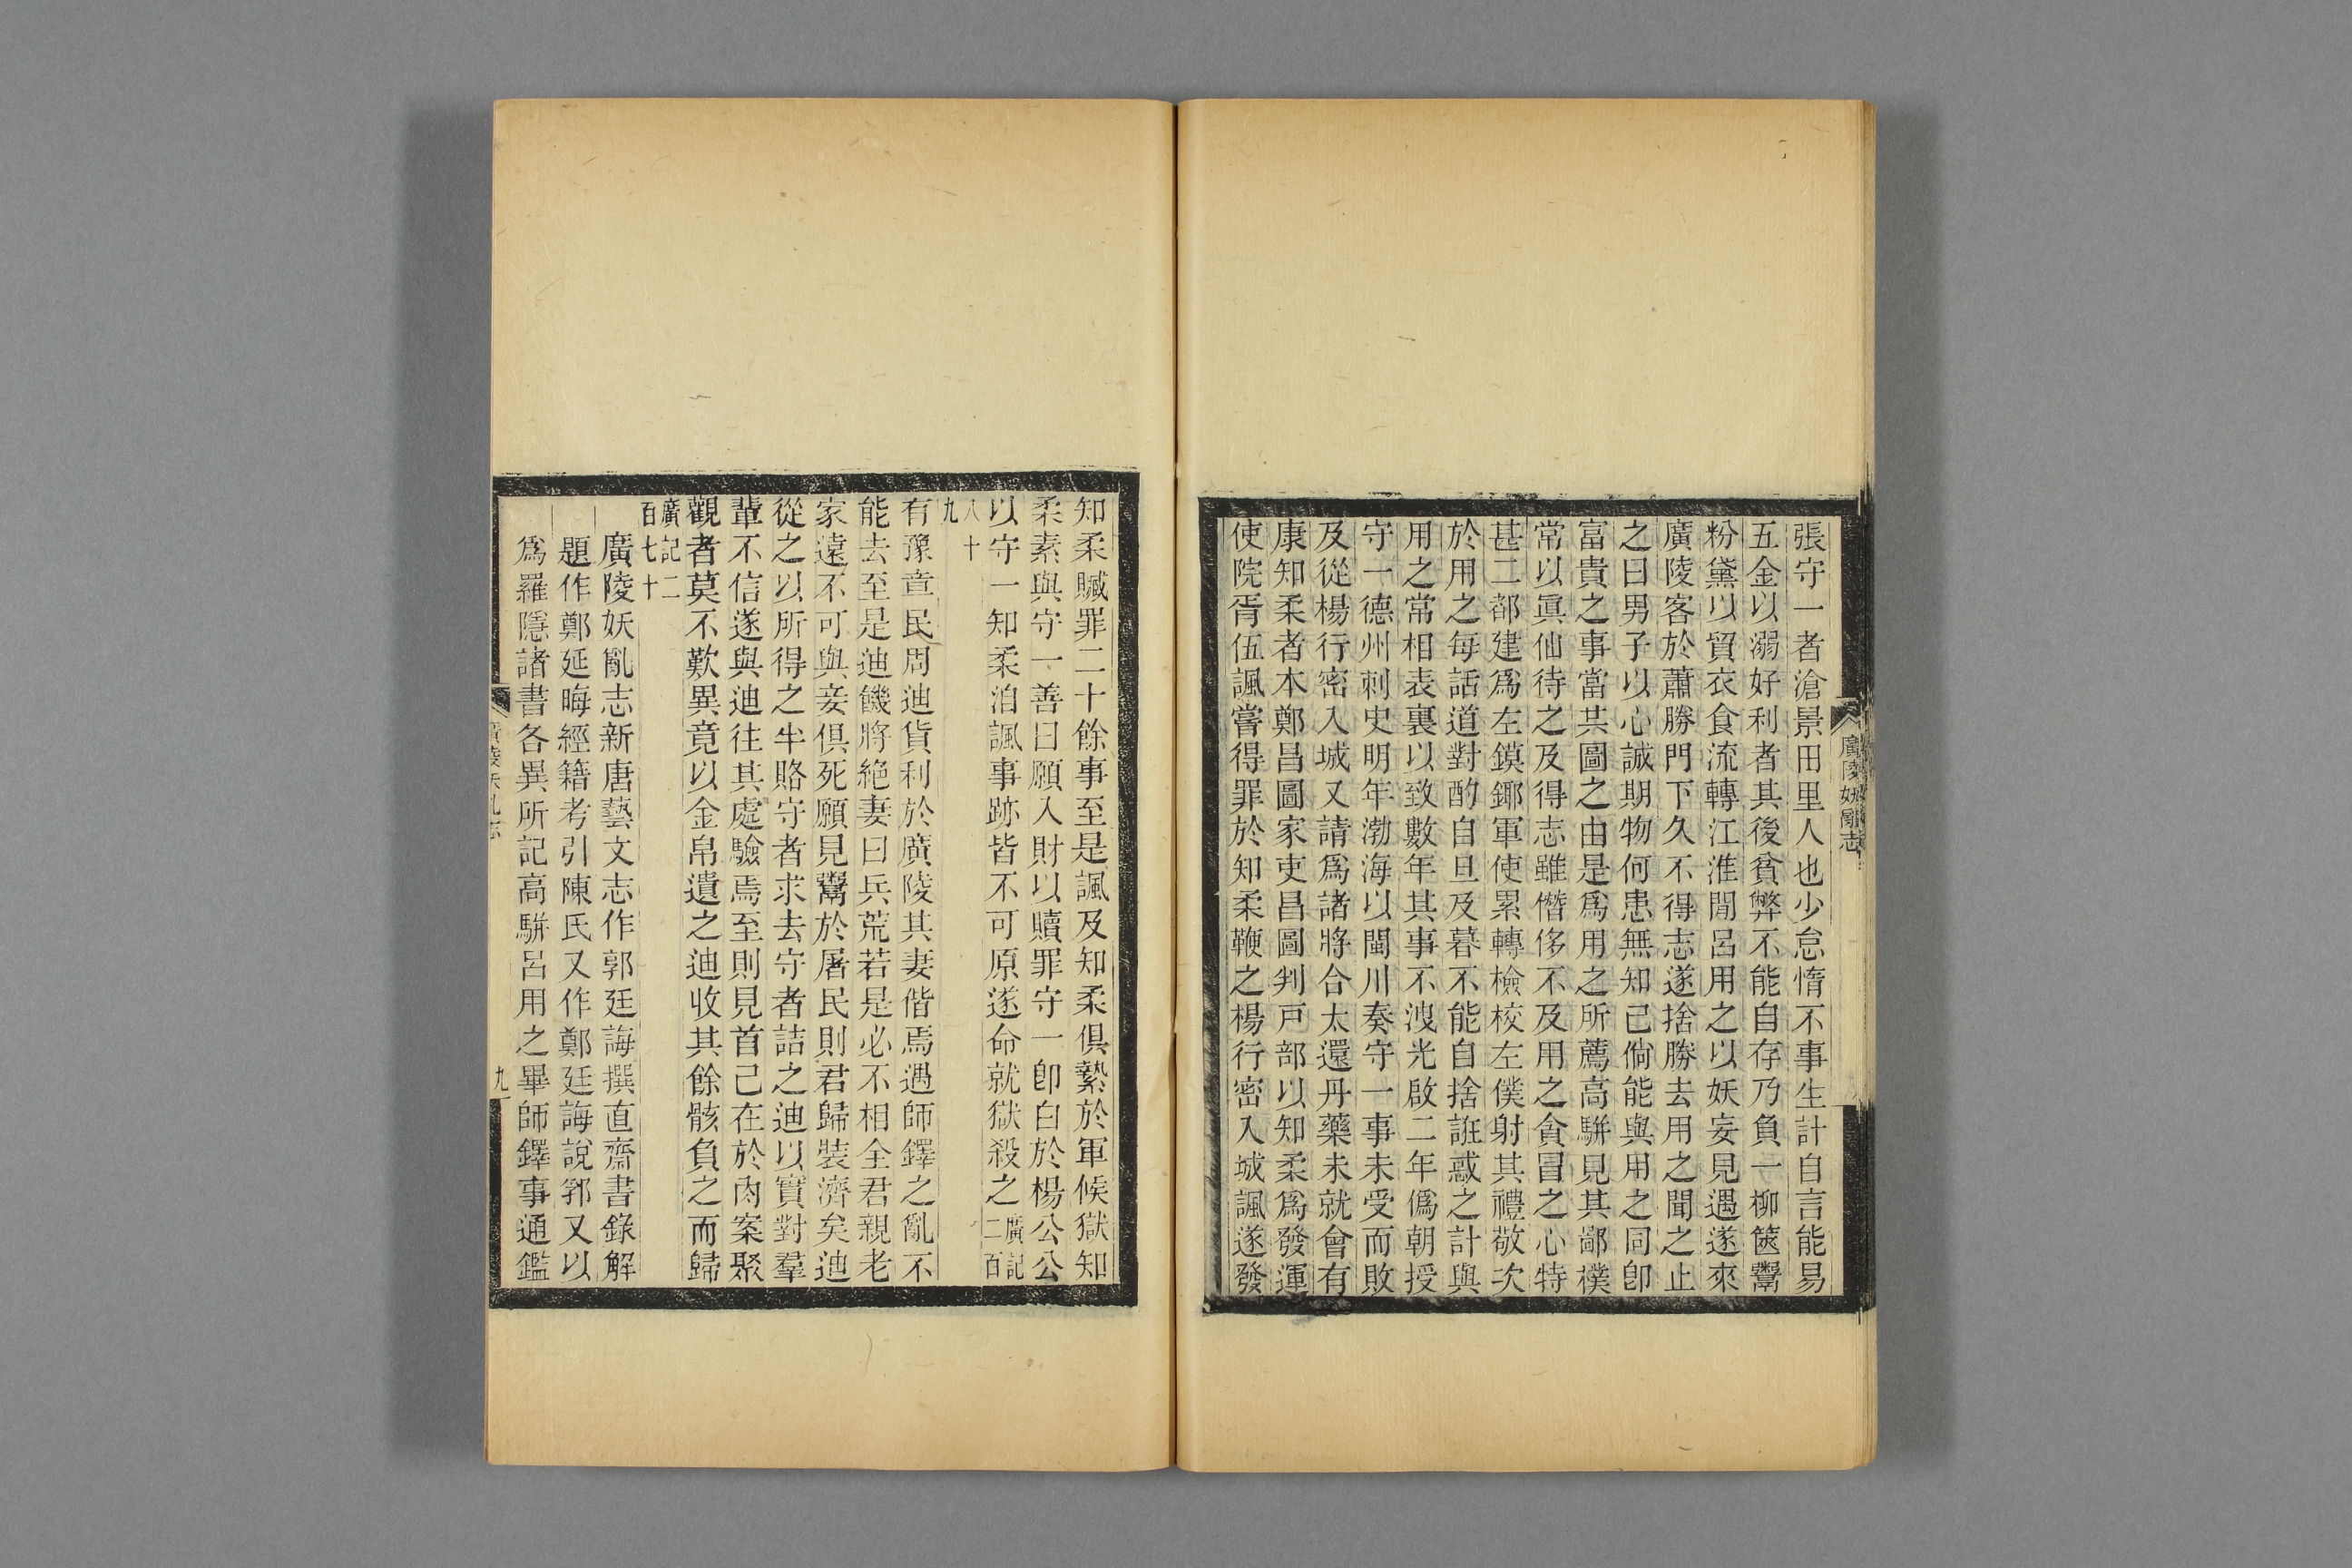 廣陵妖亂志
張守一者滄景田里人也少怠惰不事生計自言能易
五金以溺好利者其後貧弊不能自存乃負一柳篋鬻
粉黛以貿衣食流轉江淮閒呂用之以妖妄見遇遂來
廣陵客於蕭勝門下久不得志遂捨勝去用之聞之止
之曰男子以心誠期物何患無知己倘能與用之同卽
富貴之事當共圖之由是爲用之所薦高駢見其鄙樸
常以眞仙待之及得志雖僭侈不及用之貪冒之心特
甚二都建爲左鏌鋣軍使累轉檢校左僕射其禮敬次
於用之每話道對酌自旦及暮不能自捨誑惑之計與
用之常相表裏以致數年其事不洩光啟二年僞朝授
守一德州刺史明年渤海以閩川奏守一事未受而敗
及從楊行密入城又請爲諸將合太還丹藥未就會有
康知柔者本鄭昌圖家吏昌圖判戸部以知柔爲發運
使院胥伍諷嘗得罪於知柔鞭之楊行密入城諷遂發
知柔贓罪二十餘事至是諷及知柔俱縶於軍候獄知
柔素與守一善曰願入財以贖罪守一卽白於楊公公
以守一知柔洎諷事跡皆不可原遂命就獄殺之廣記二百
八十九
有豫章民周迪貨利於廣陵其妻偕焉遇師鐸之亂不
能去至是迪饑將絕妻曰兵荒若是必不相全君親老
家遠不可與妾俱死願見鬻於屠民則君歸裝濟矣迪
從之以所得之半賂守者求去守者詰之迪以實對羣
輩不信遂與迪往其處驗焉至則見首已在於肉案聚
觀者莫不歎異竟以金帛遺之迪收其餘骸負之而歸
廣記二百七十
廣陵妖亂志新唐藝文志作郭廷誨撰直齋書錄解
題作鄭延晦經籍考引陳氏又作鄭廷誨說郛又以
爲羅隱諸書各異所記高駢呂用之畢師鐸事通鑑
廣陵妖亂志
九